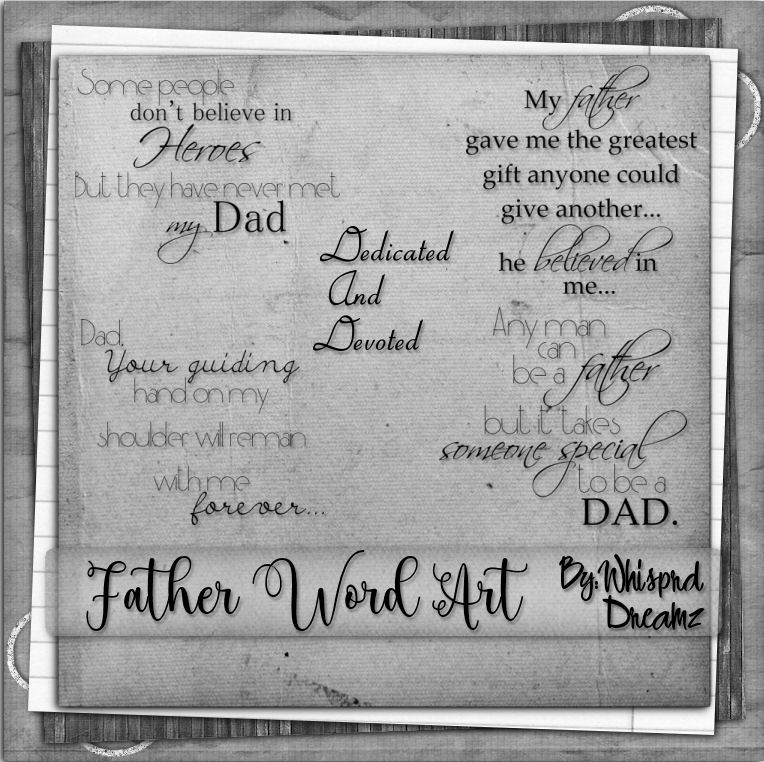 Some people
don't believe in
Heroes
But they have never met
my Dad
My father
gave me the greatest
gift anyone could
give another...
he believed in
me...
Dedicated
And
Devoted
Dad.
Your guiding
hand on my
shoulder will remain
with me
forever...
Any man
can
be a father
but it takes
someone special
to be a
DAD.
Father Word Art
By: Whisprd
Dreamz